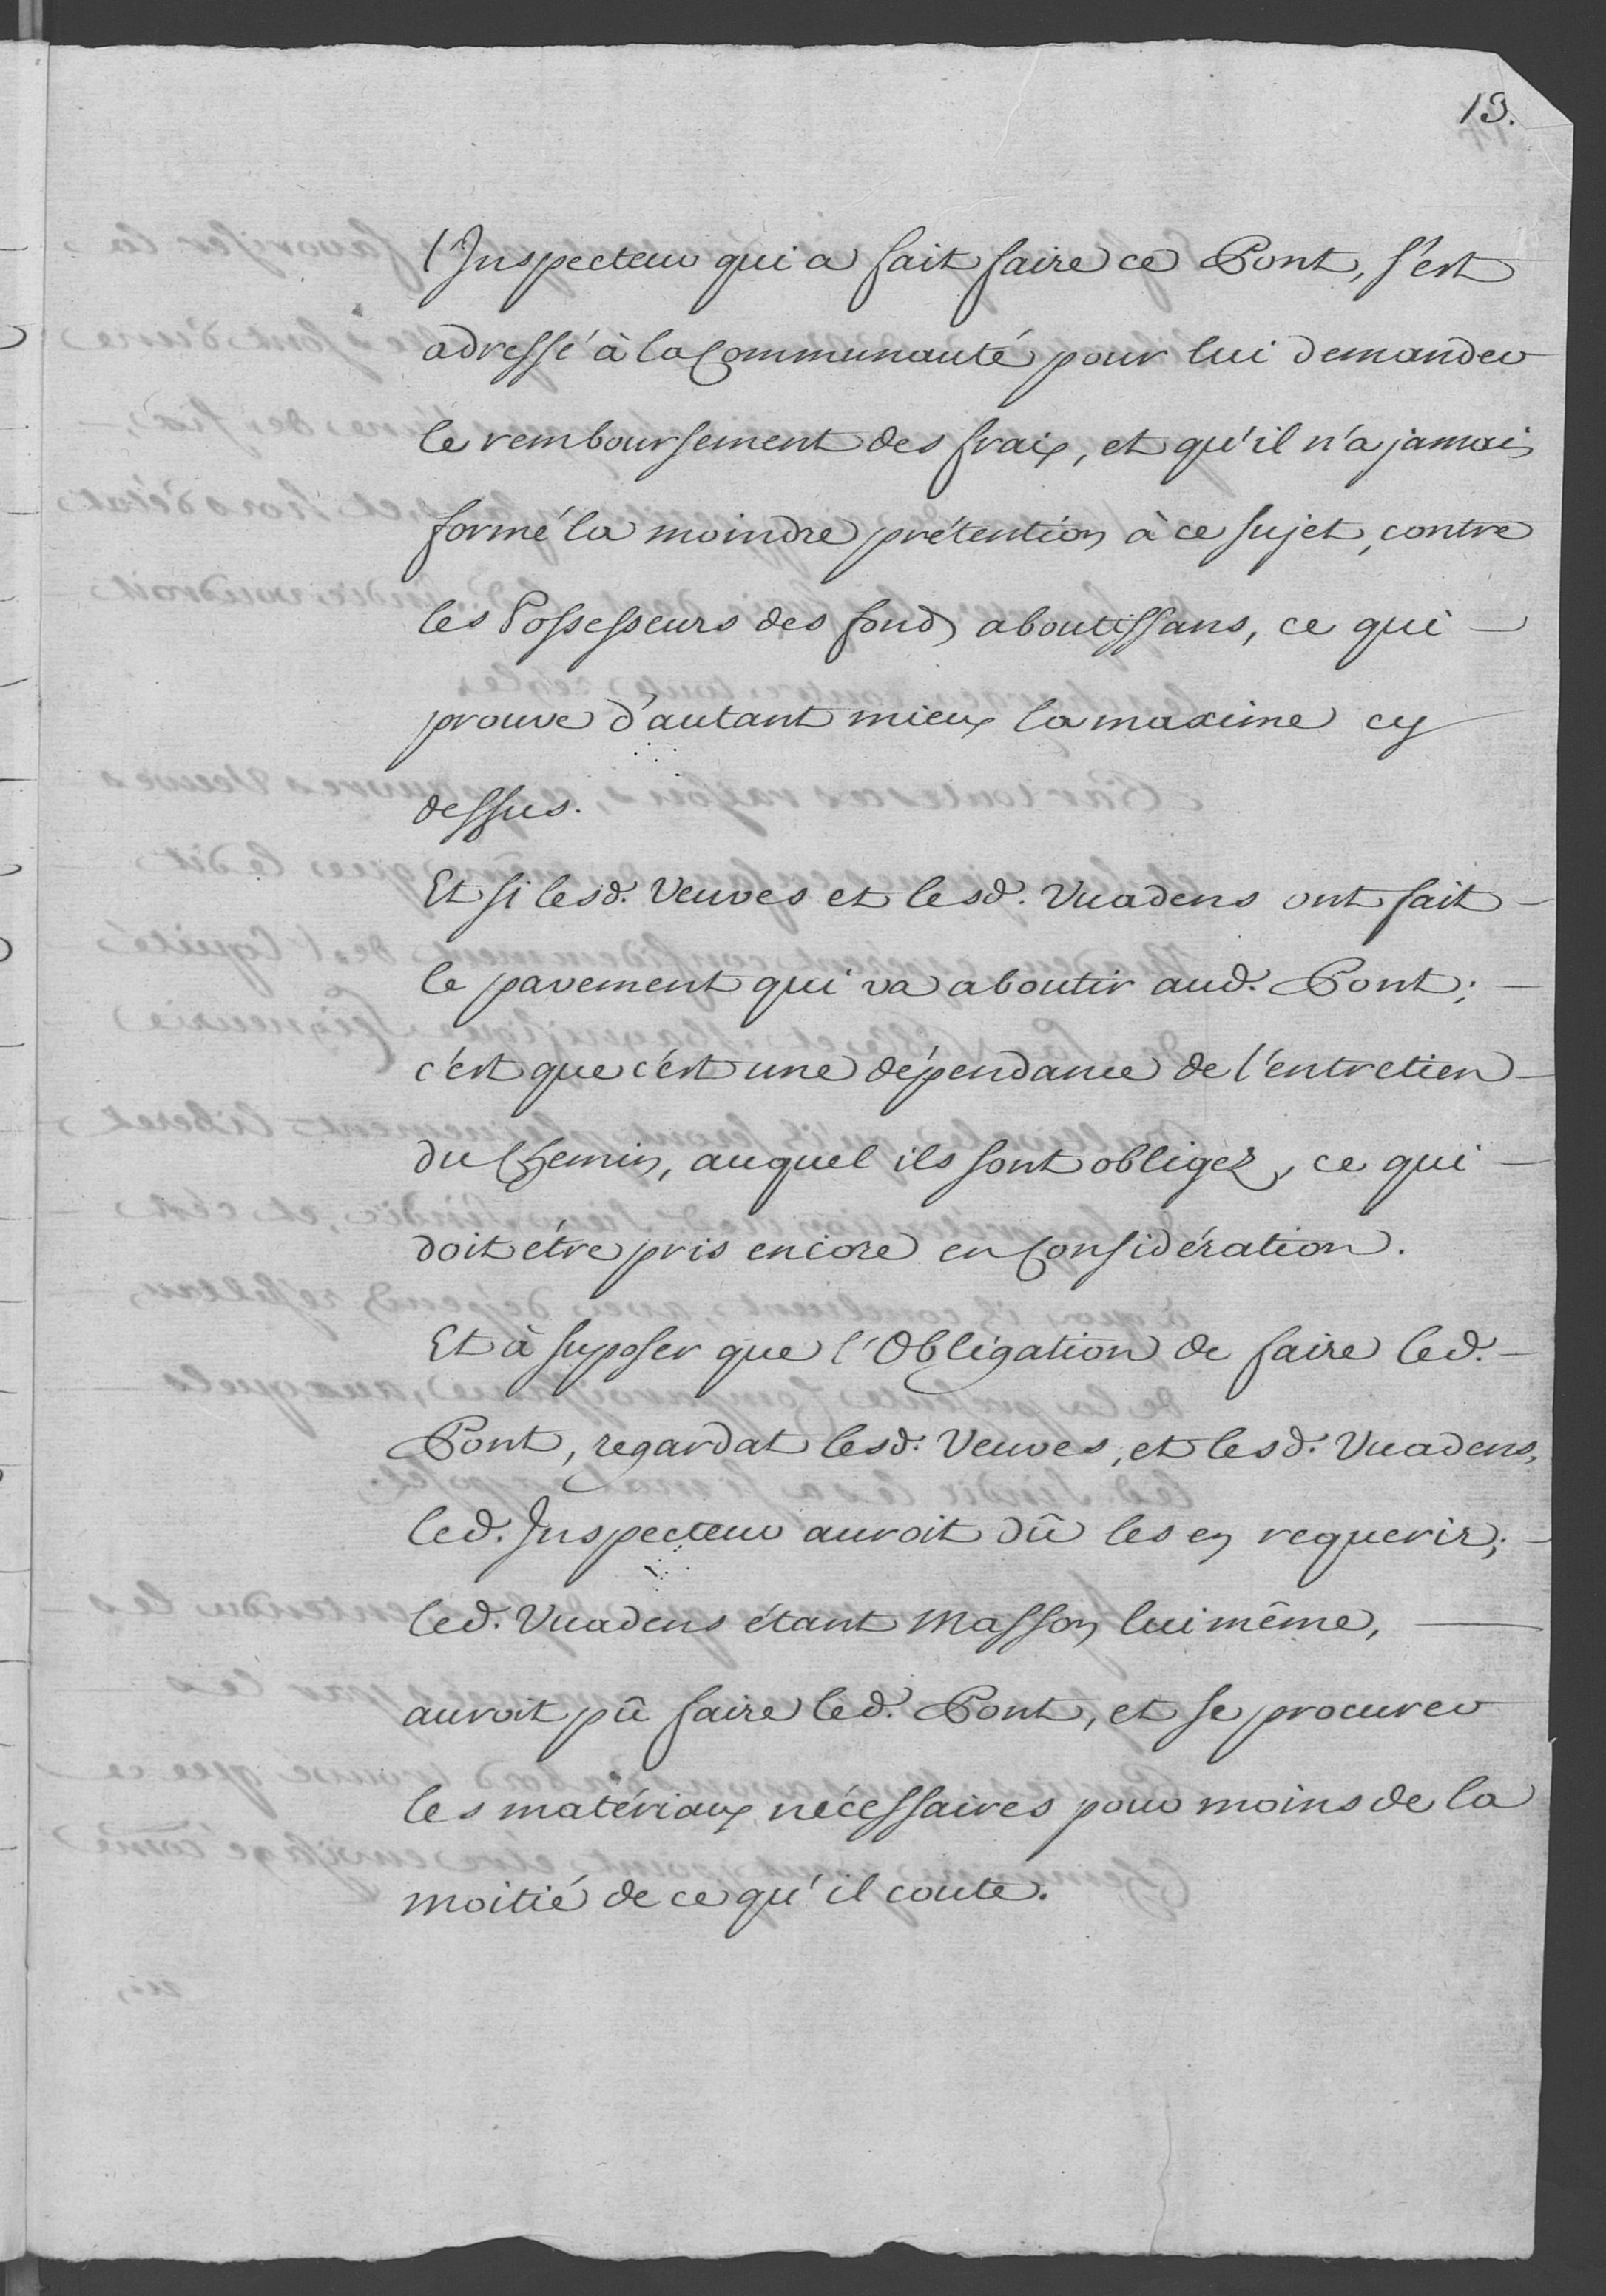 13.
l'Inspecteur qui a fait faire ce Pont, s'est
adressé à la Communauté pour lui demander
le remboursement des fraix, et qu'il n'a jamais
formé la moindre prétention à ce sujet, contre
les Possesseurs des fonds aboutissans, ce qui —
prouve d'autant mieux la maxime cy
dessus.
Et si lesd. Veuves et lesd. Vuadens ont fait —
le pavement qui va aboutir aud. Pont; —
c'est que c'est une dépendance de l'entretien —
du Chemin, auquel ils sont obligez, ce qui —
doit étre pris encore en Considération.
Et à suposer que l'Obligation de faire led. —
Pont, regardat lesd. Veuves, et lesd. Vuadens,
led. Inspecteur auroit dû les en requerir; —
led. Vuadens étant Masson lui même, —
auroit pû faire led. Pont, et se procurer
les matériaux nécessaires pour moins de la
moitié de ce qu'il coute.